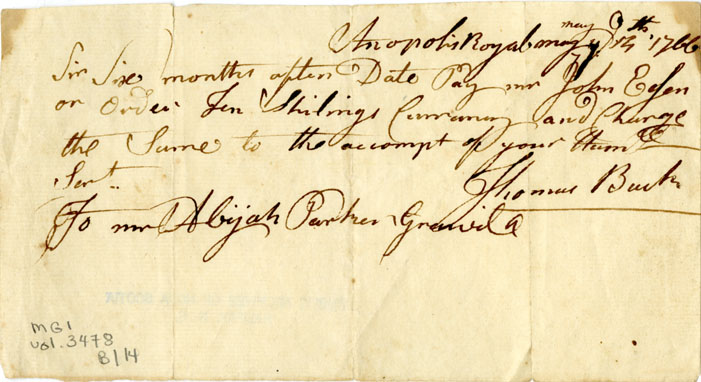 may 9th
Anopolis Royal may 14 1766
Sir Six months after Date Pay mr John Eason
or Order Ten Shilings Currancy and Charge
the Same to the accompt of your Hum
Sert
Thomas Buck
To mr Abijah Parker Granvil
MG1
vol. 3478
B/14